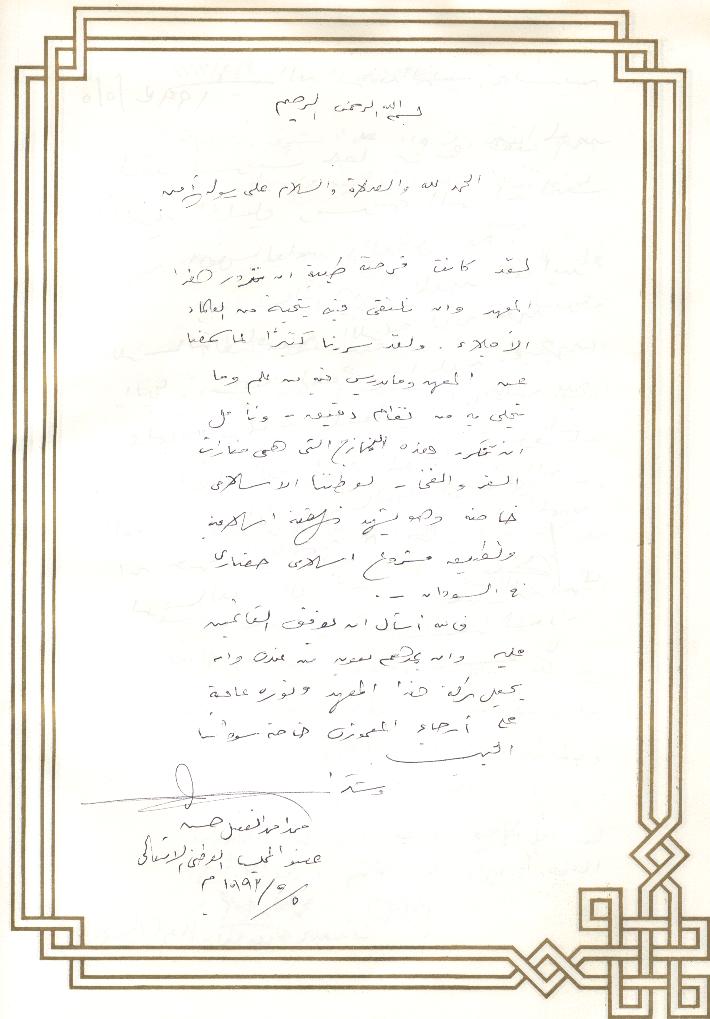 بسم الله الرحمن الرحيم
الحمد لله والصلاة والسلام على رسوله الأمين
لقد كانت فرصة طيبة ان نزور هذا
المعهد وان نلتقي فيه بنخبة من العلماء
الأجلاء . ولقد سررنا كثيرًا لما سمعنا
عن المعهد وما يدرس فيه من علم وما
يتحلى به من نظام دقيق - ونأمل
ان تتكرر هذه النماذج التي هي منارات
العز والفخر - لوطننا الاسلامي
خاصة وهو يشهد نهضة اسلامية
وتطبيق مشروع اسلامي حضاري
في السودان - .
فالله أسأل ان يوفق القائمين
عليه وان يمدهم بعون من عنده وان
يجعل بركة هذا المعهد ونوره عامة
على أرجاء المعمورة خاصة سوداننا
الحبيب
وشكراً
محمد احمد الفضل حسن
عضو المجلس الوطني الانتقالي
١٩٩٢/٥/٥ م